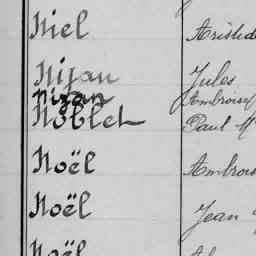 Niel Aristide
Nijan Jules
Nizan Ambroise
Noblet Paul M
Noël Ambroi
Noël Jean
Noël